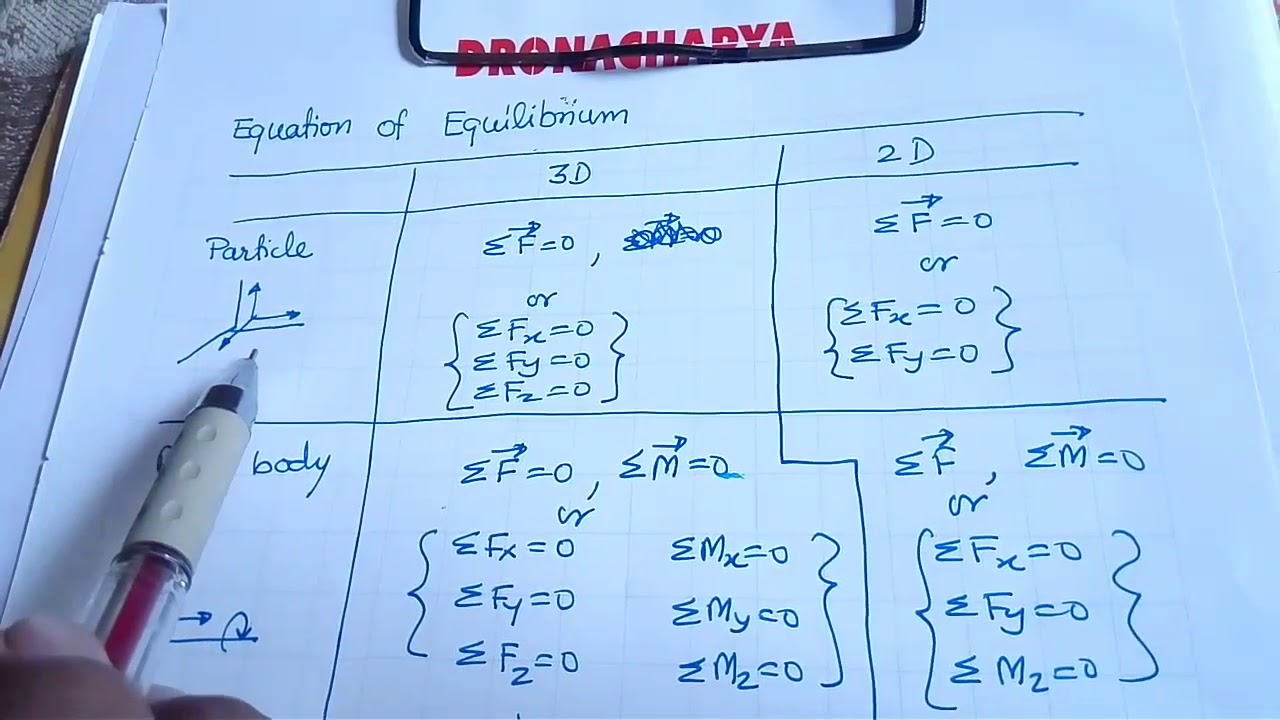 DRONACHARYA
Equation of Equilibrium
3D
2D
Particle
Σ F⃗ = 0 ,
or
{ Σ Fx = 0
Σ Fy = 0
Σ Fz = 0 }
Σ F⃗ = 0
or
{ Σ Fx = 0
Σ Fy = 0 }
body
Σ F⃗ = 0 , Σ M⃗ = 0
or
{ Σ Fx = 0 Σ Mx = 0
Σ Fy = 0 Σ My = 0
Σ Fz = 0 Σ Mz = 0 }
Σ F⃗ , Σ M⃗ = 0
or
{ Σ Fx = 0
Σ Fy = 0
Σ Mz = 0 }